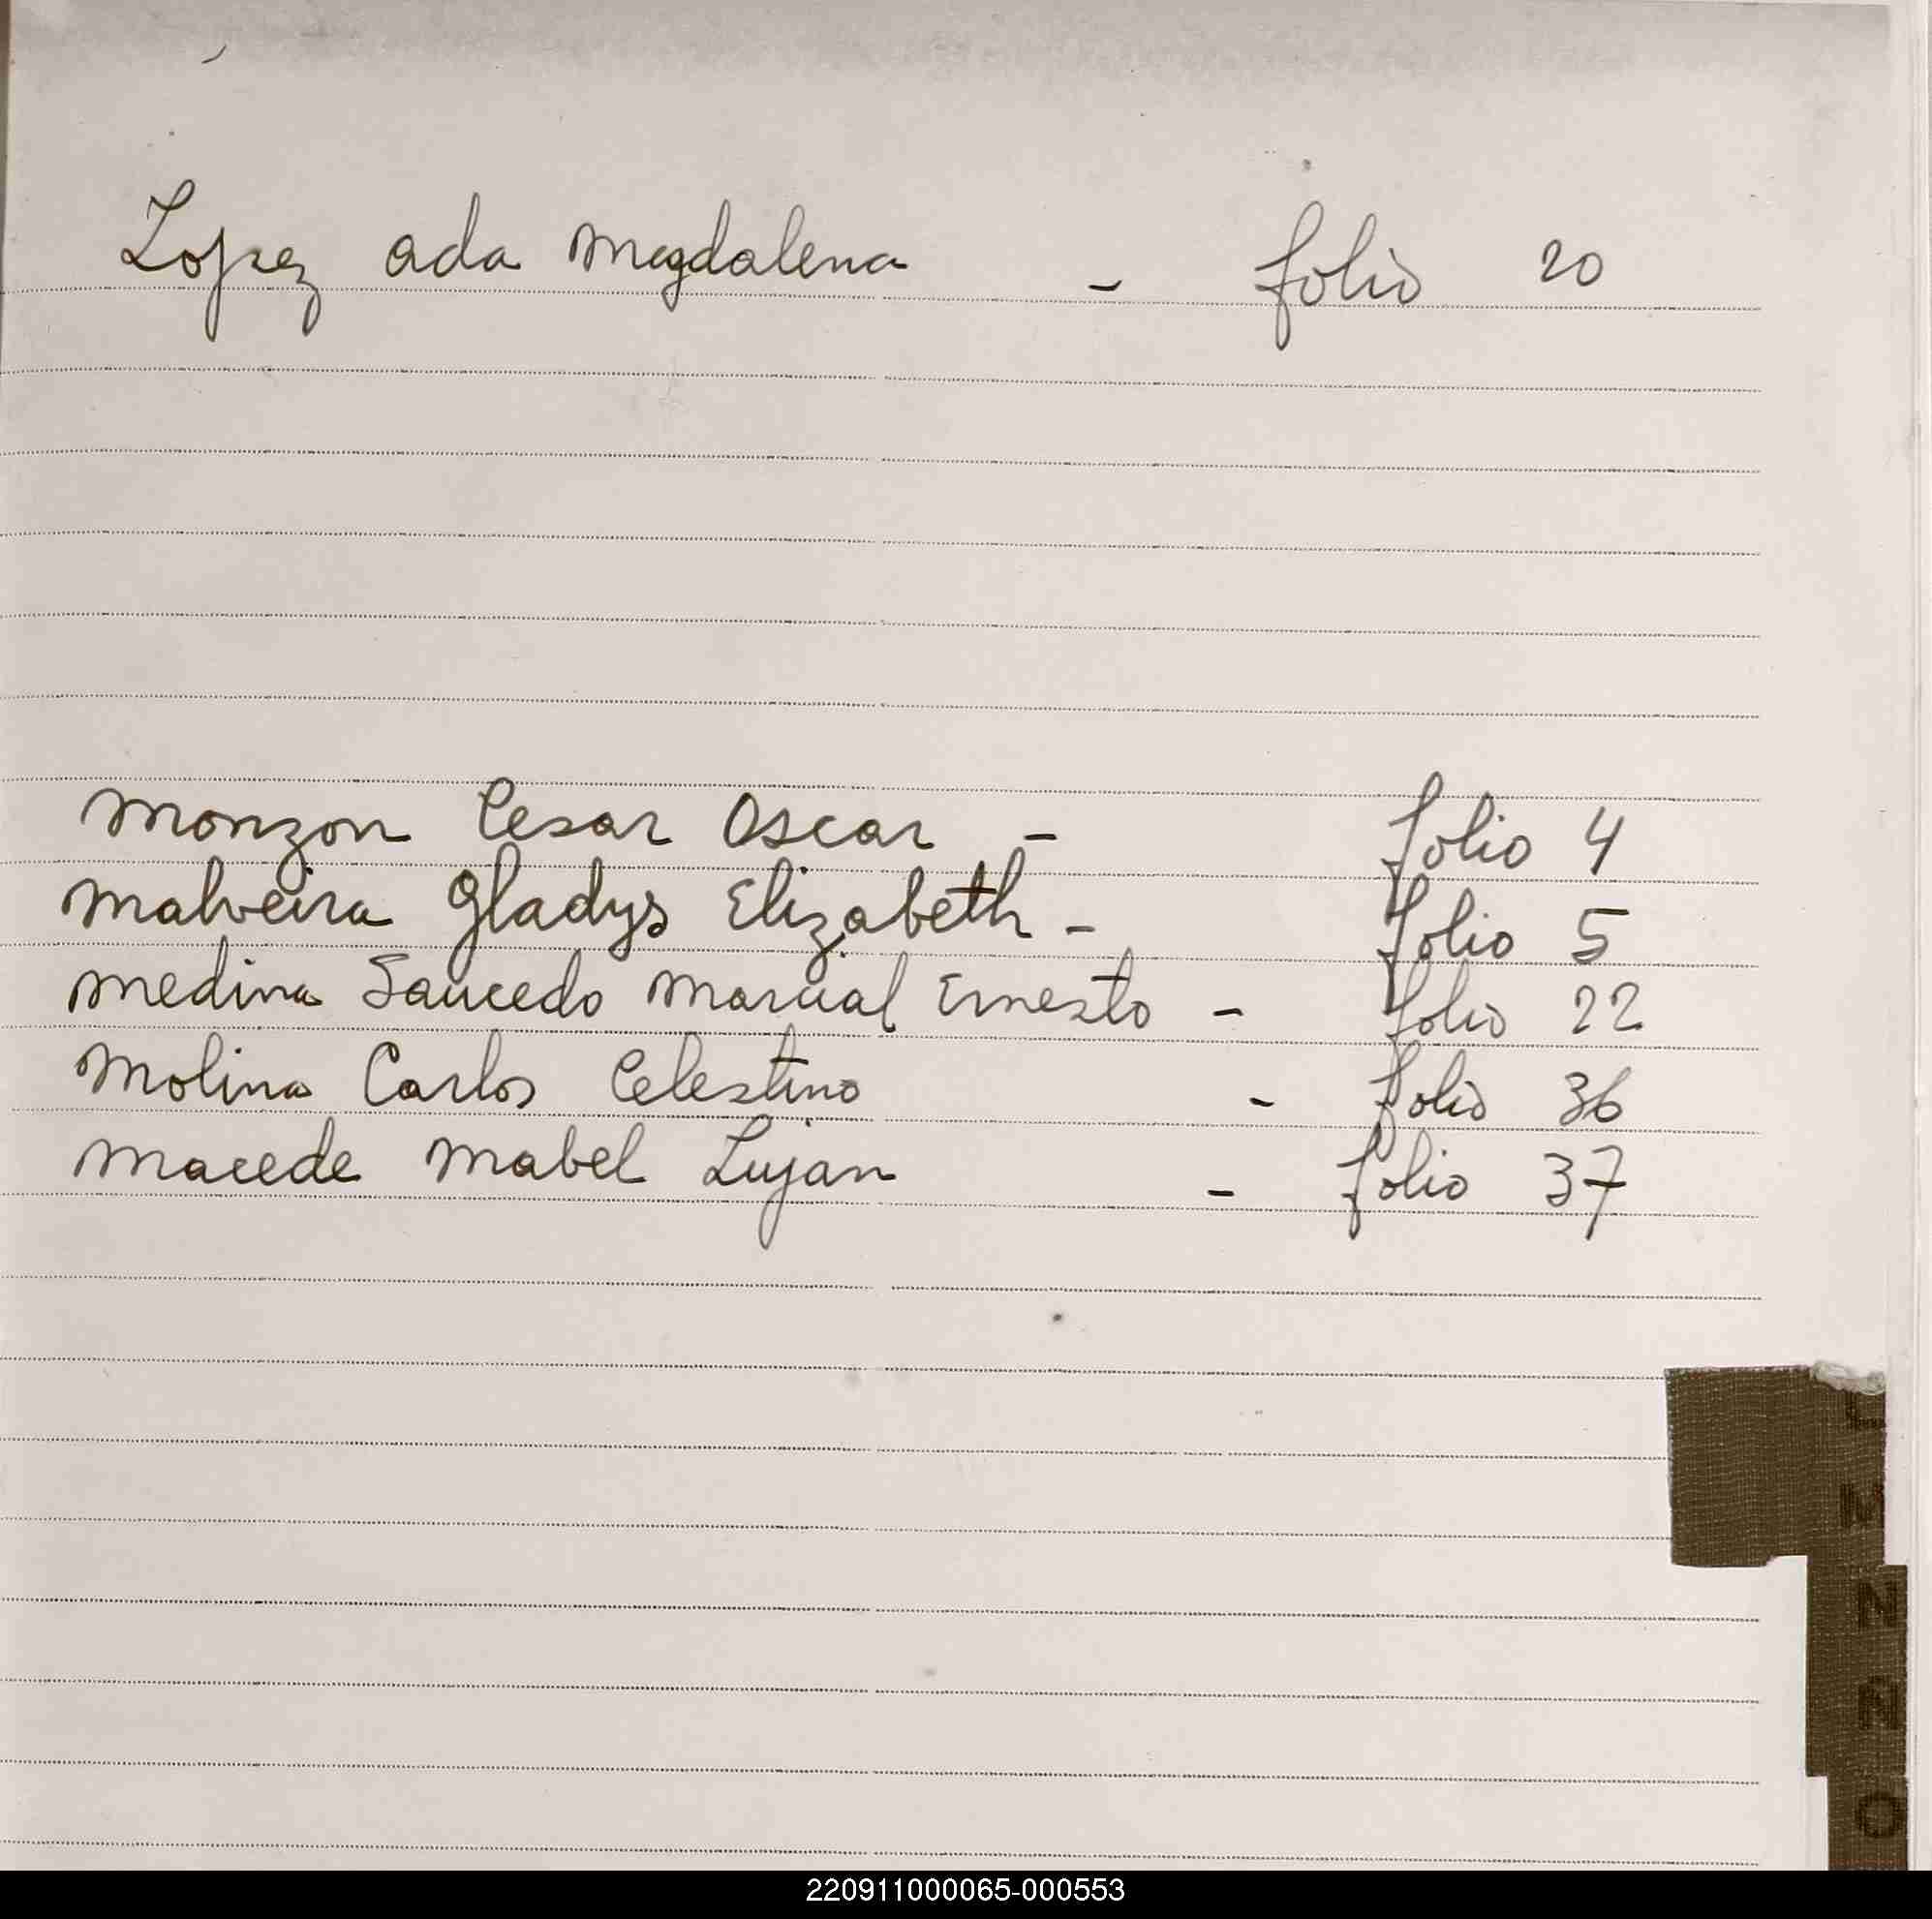 Lopez ada Magdalena - folio 20
Monzon Cesar Oscar - folio 4
Malveira Gladys Elizabeth - folio 5
Medina Saucedo Marcial Ernesto - folio 22
Molina Carlos Celestino - folio 36
Macede Mabel Lujan - folio 37
L
M
N
Ñ
O
220911000065-000553